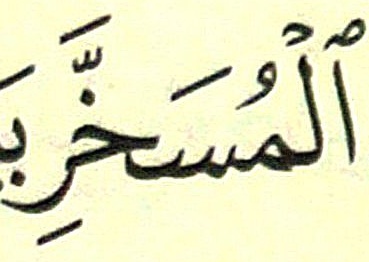 ٱلْمُسَخَّرِ